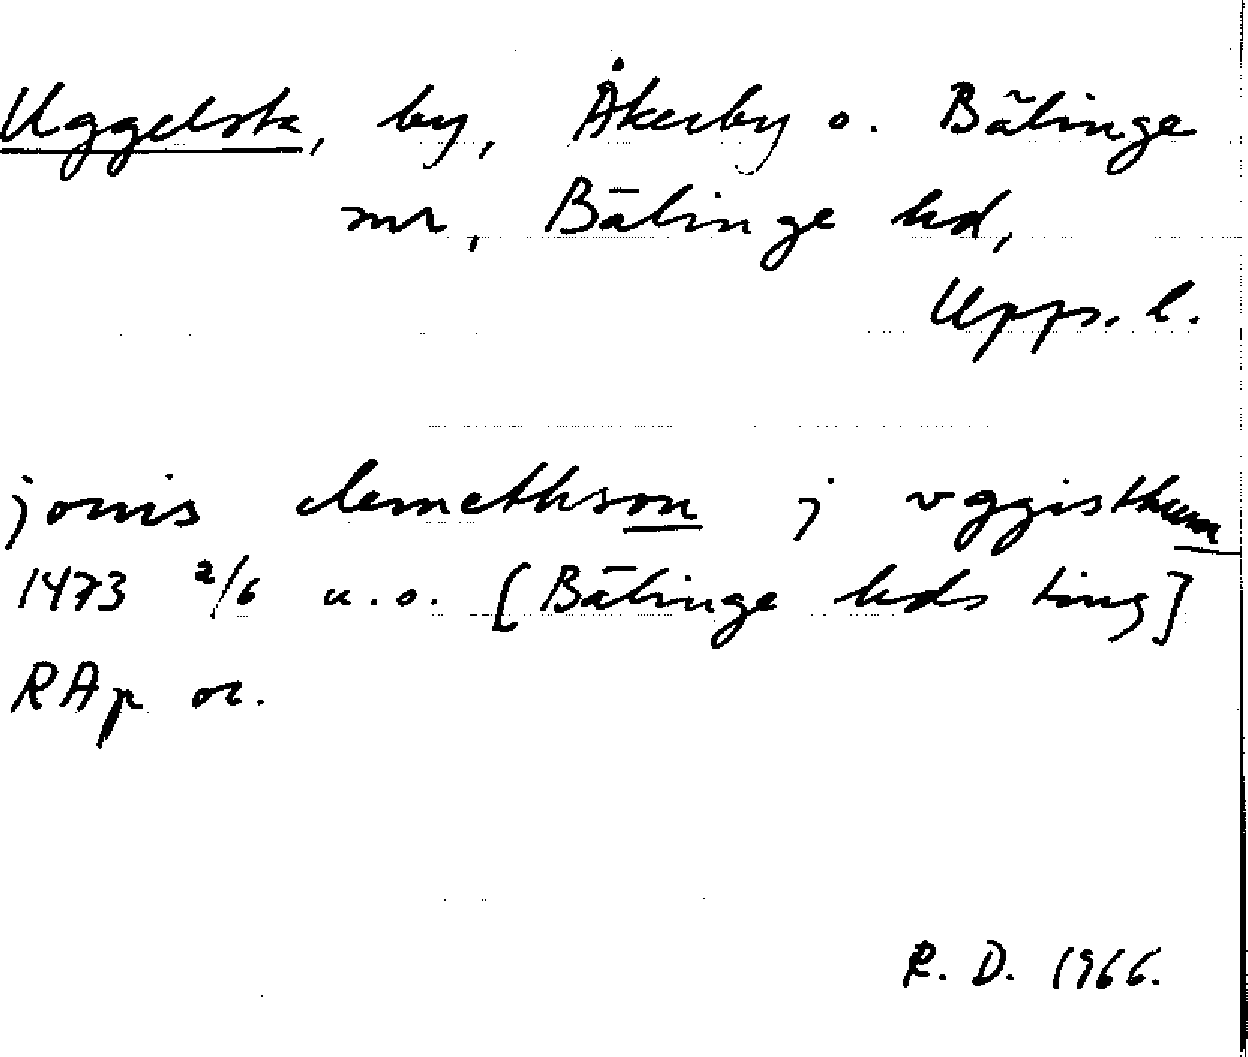 Uggelsta, by, Åkerby o. Bälinge
snr, Bälinge hd,
Upps. l.
jonis clemethson j vggisthum
1473 2/6 u.o. [Bälinge hds ting]
RAp or.
R. D. 1966.